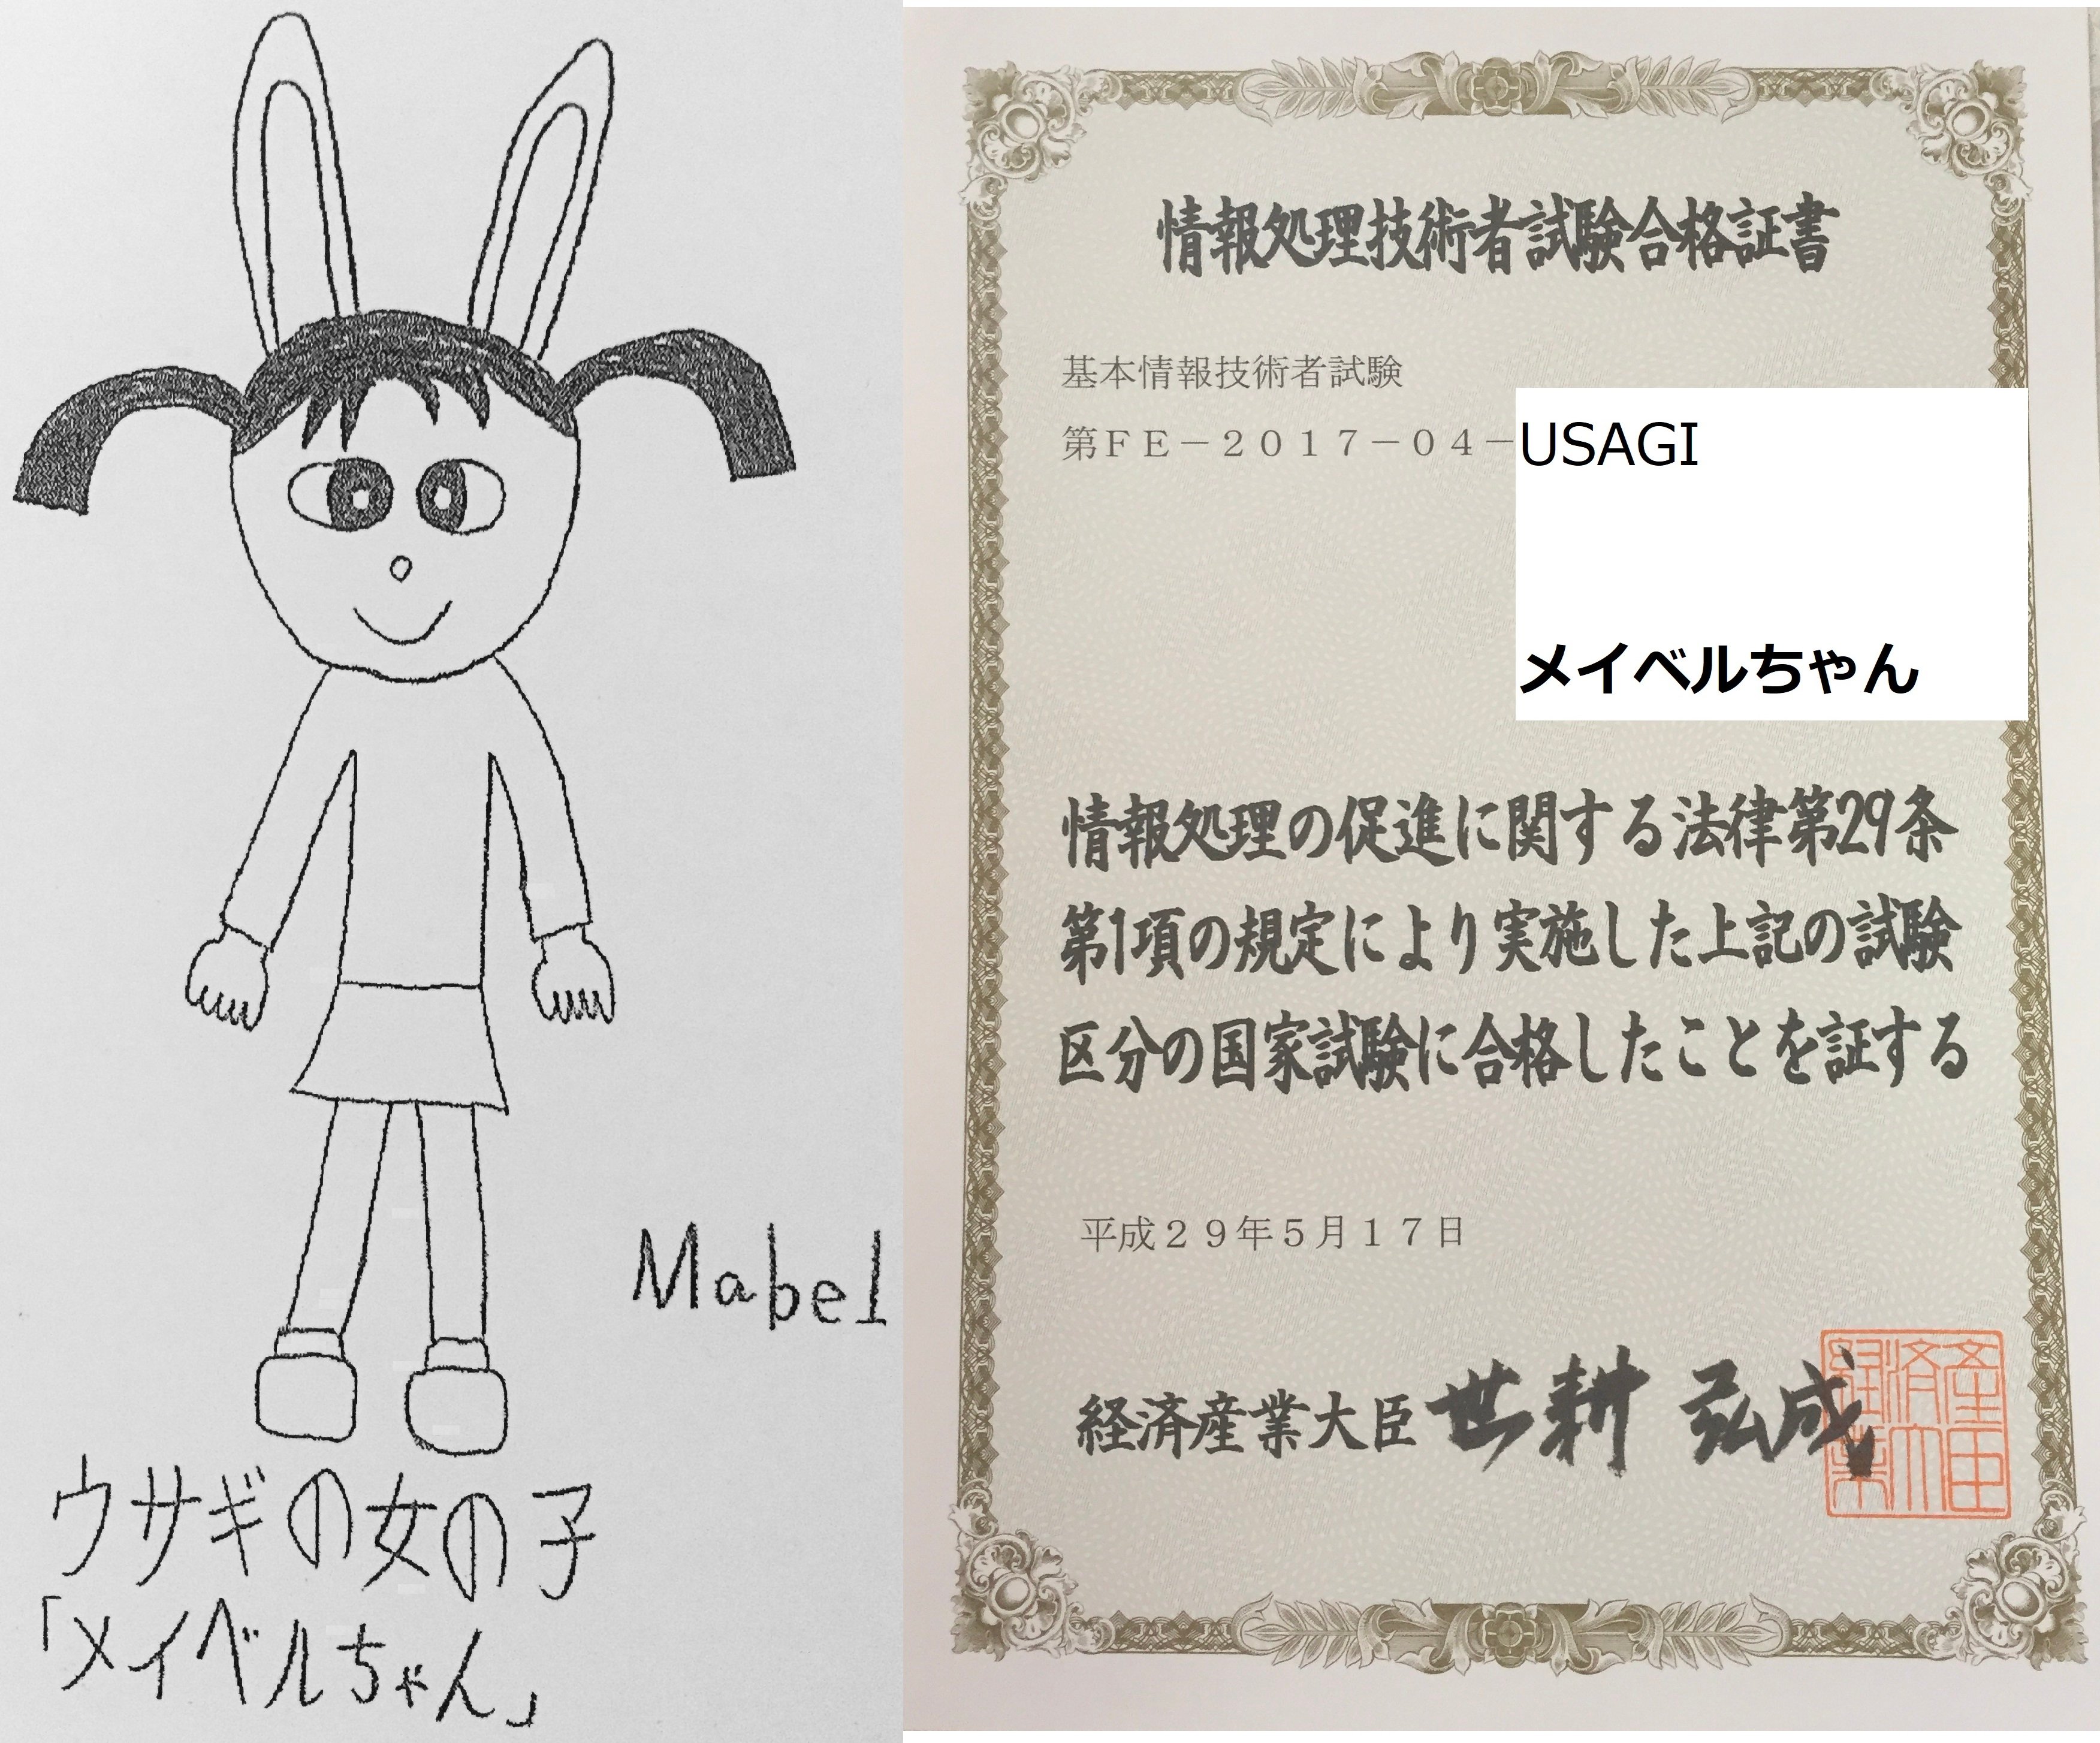 Mabel
ウサギの女の子
「メイベルちゃん」
情報処理技術者試験合格証書
基本情報技術者試験
第FE－2017－04－USAGI
メイベルちゃん
情報処理の促進に関する法律第29条
第1項の規定により実施した上記の試験
区分の国家試験に合格したことを証する
平成29年5月17日
経済産業大臣 世耕 弘成